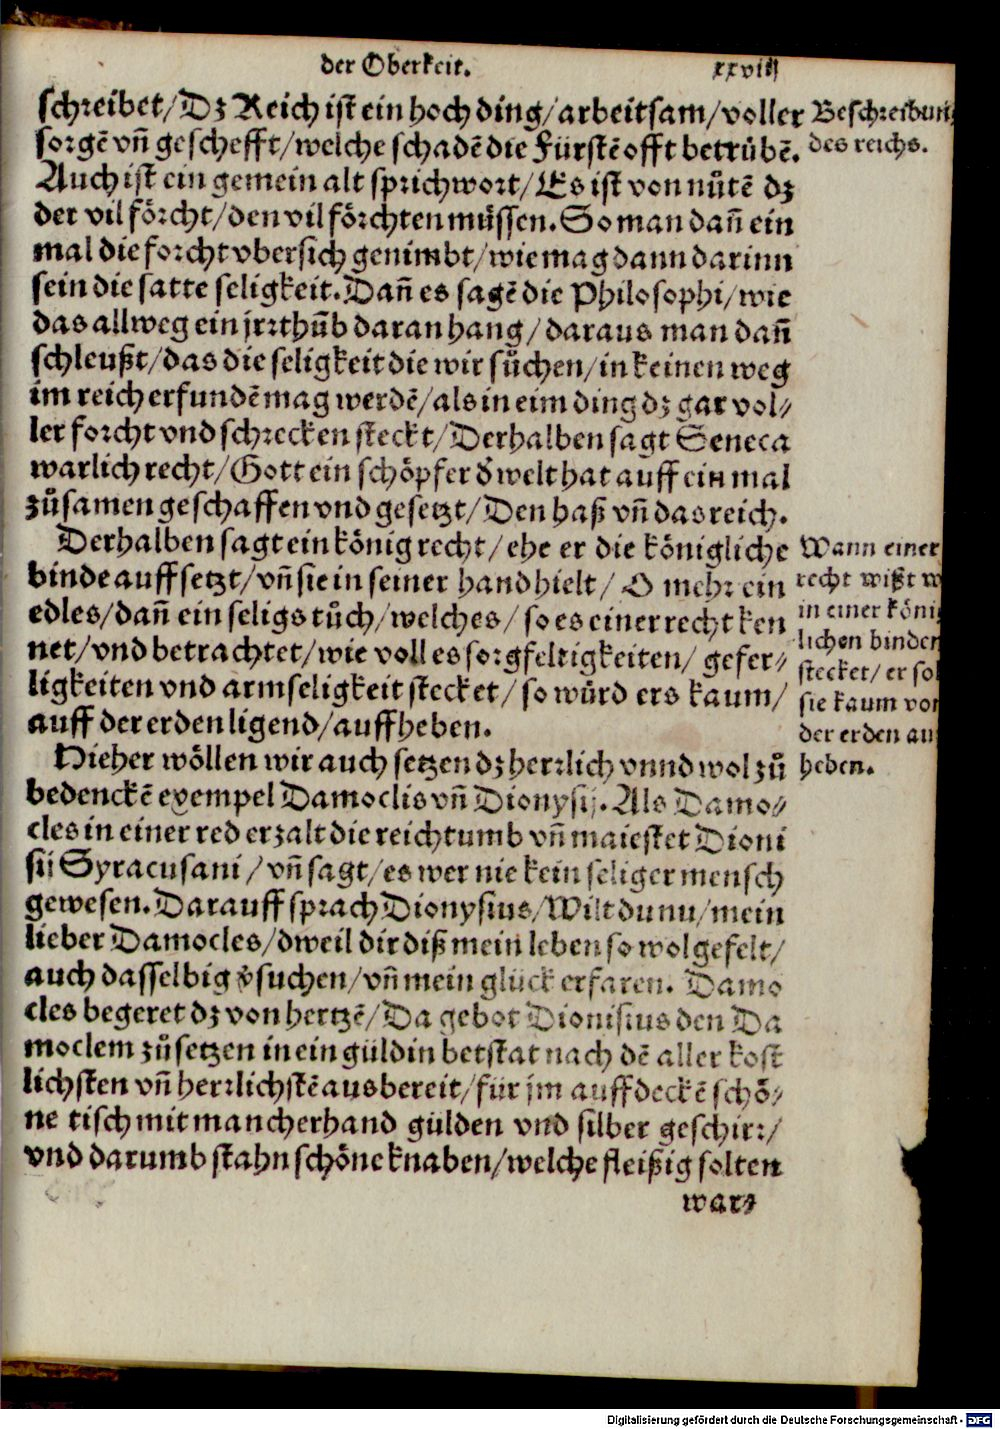 der Oberkeit. xxviij
schreibet/Dz Reich ist ein hoch ding/arbeitsam/voller
sorgẽ vñ geschefft/welche schadẽ die Fürstẽ offt betrůbẽ.
Auch ist ein gemein alt sprichwort/Es ist von nůtẽ dz
der vil förcht/den vil förchten müssen. So man dañ ein
mal die forcht vbersich genimbt/wie mag dann darinn
sein die satte seligkeit. Dañ es sagẽ die Philosophi/wie
das allweg ein jrrthũb daran hang/daraus man dañ
schleußt/das die seligkeit die wir sůchen/in keinen weg
im reich erfundẽ mag werdẽ/als in eim ding dz gar vol⸗
ler forcht vnd schrecken steckt/Derhalben sagt Seneca
warlich recht/Gott ein schöpfer d̕ welt hat auff ein mal
zůsamen geschaffen vnd gesetzt/Den haß vñ das reich.
Derhalben sagt ein könig recht/ehe er die königliche
binde auff setzt/vñ sie in seiner hand hielt/O mehr ein
edles/dañ ein seligs tůch/welches/so es einer recht ken
net/vnd betrachtet/wie voll es sorgfeltigkeiten/gefer⸗
ligkeiten vnd armseligkeit stecket/so würd ers kaum/
auff der erden ligend/auffheben.
Hieher wöllen wir auch setzen dz herrlich vnnd wol zů
bedenckẽ exempel Damoclis vñ Dionysij. Als Damo⸗
cles in einer red erzalt die reichtumb vñ maiestet Dioni
sij Syracusani/vñ sagt/es wer nie kein seliger mensch
gewesen. Darauff sprach Dionysius/Wilt du nu/mein
lieber Damocles/dweil dir diß mein leben so wol gefelt/
auch dasselbig v̕suchen/vñ mein glück erfaren. Damo
cles begeret dz von hertzẽ/Da gebot Dionisius den Da
moclem zůsetzen in ein güldin betstat nach dẽ aller kost
lichsten vñ herrlichstẽ ausbereit/für jm auffdeckẽ schö⸗
ne tisch mit mancherhand gülden vnd silber geschirr/
vnd darumb stahn schöne knaben/welche fleißig solten
war⸗
Beschreibun
des reichs.
Wann einer
recht wißt w
in einer köni
lichen binden
stecket/er sol
sie kaum von
der erden au
heben.
Digitalisierung gefördert durch die Deutsche Forschungsgemeinschaft - DFG